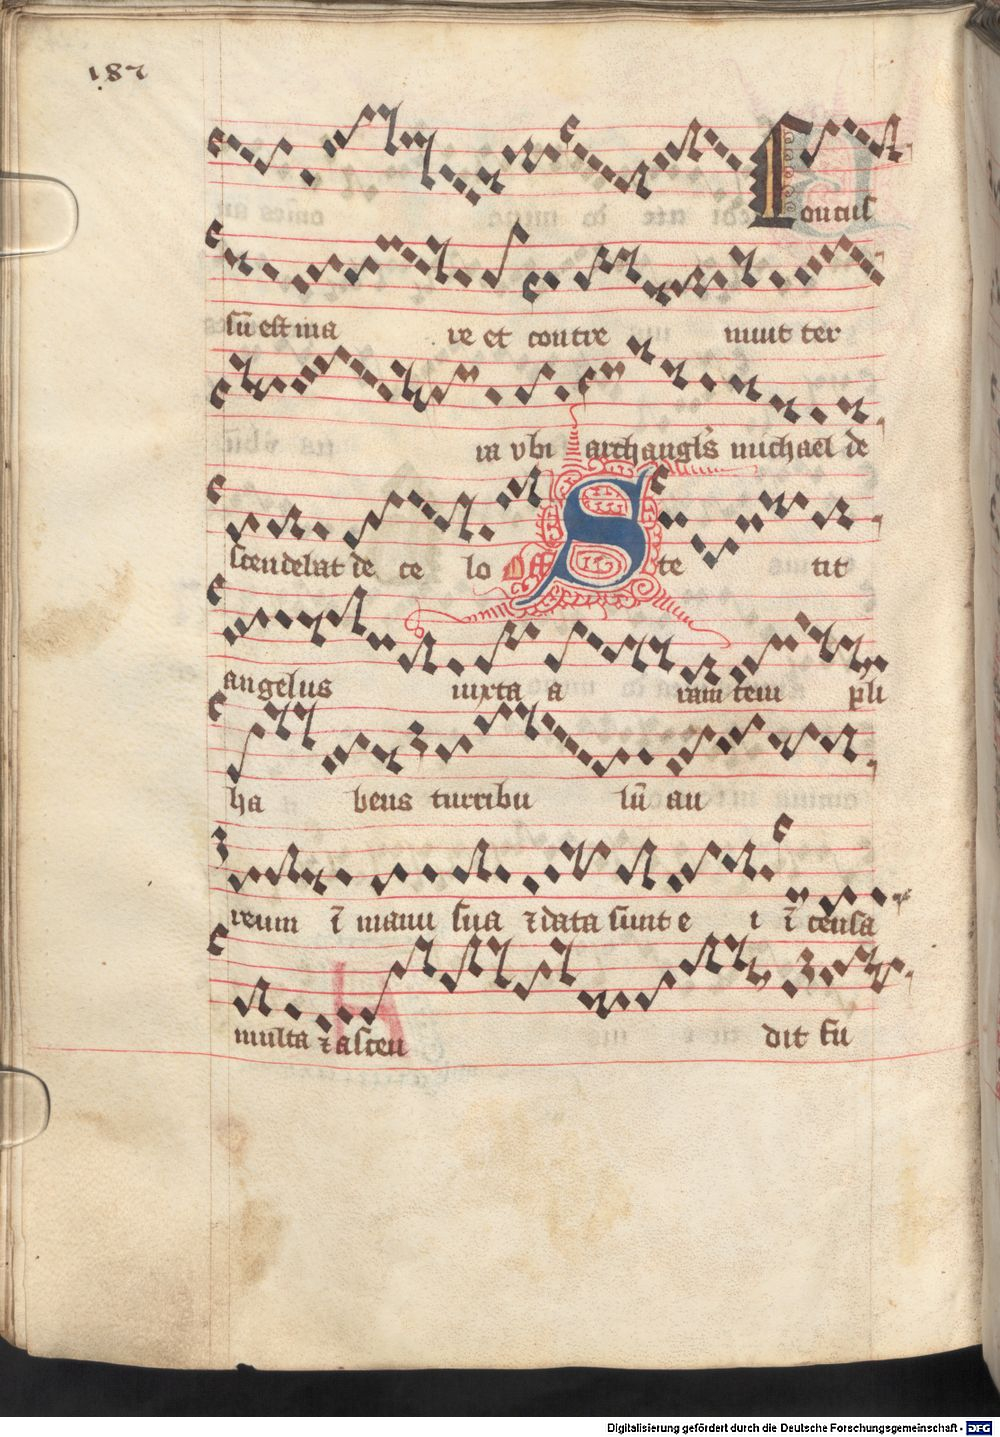 187
Concus
sū est ma re et contre muit ter
ra vbi archangl's michael de
scendebat de ce lo Of Ste tit
angelus iuxta a ram tem pli
ha bens turribu lū au
reum ī manu sua ⁊ data sunt e i ī censa
multa ⁊ ascen dit fu
Digitalisierung gefördert durch die Deutsche Forschungsgemeinschaft - DFG